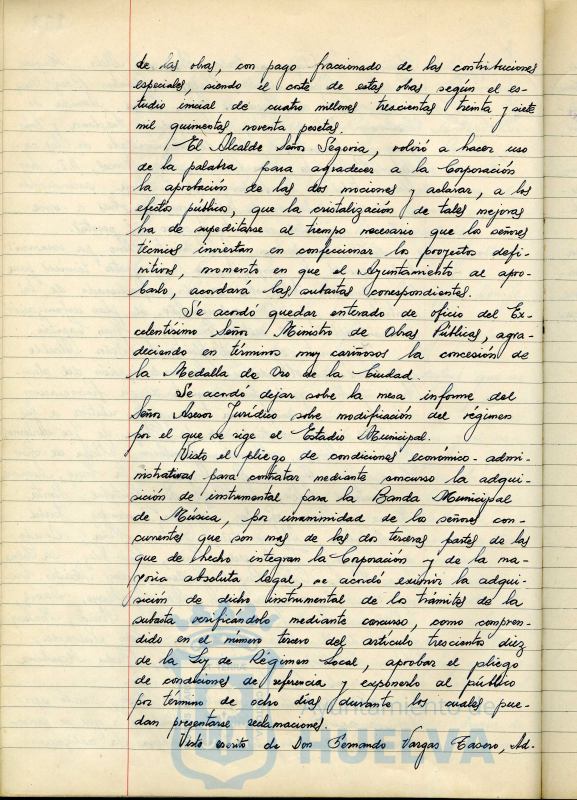 de las obras, con pago fraccionado de las contribuciones
especiales, siendo el coste de estas obras según el es-
tudio inicial de cuatro millones trescientas treinta y siete
mil quinientas noventa pesetas.
El Alcalde Señor Segovia, volvió a hacer uso
de la palabra para agradecer a la Corporación
la aprobación de las dos mociones y aclarar, a los
efectos públicos, que la cristalización de tales mejoras
ha de supeditarse al tiempo necesario que los señores
técnicos inviertan en confeccionar los proyectos defi-
nitivos, momento en que el Ayuntamiento al apro-
barlo, acordará las subastas correspondientes.
Se acordó quedar enterado de oficio del Ex-
celentísimo Señor Ministro de Obras Públicas, agra-
deciendo en términos muy cariñosos la concesión de
la Medalla de Oro de la Ciudad.
Se acordó dejar sobre la mesa informe del
Señor Asesor Jurídico sobre modificación del régimen
por el que se rige el Estadio Municipal.
Visto el pliego de condiciones económico-admi-
nistrativas para contratar mediante concurso la adqui-
sición de instrumental para la Banda Municipal
de Música, por unanimidad de los señores con-
currentes que son mas de las dos terceras partes de las
que de hecho integran la Corporación y de la ma-
yoria absoluta legal, se acordó eximir la adqui-
sición de dicho instrumental de los trámites de la
subasta verificándolo mediante concurso, como compren-
dido en el número tercero del artículo trescientos diez
de la Ley de Régimen Local, aprobar el pliego
de condiciones de referencia y exponerlo al público
por término de ocho días durante los cuales pue-
dan presentarse reclamaciones.
Visto escrito de Don Fernando Vargas Tasero, Ad-
Ayuntamiento de
HUELVA